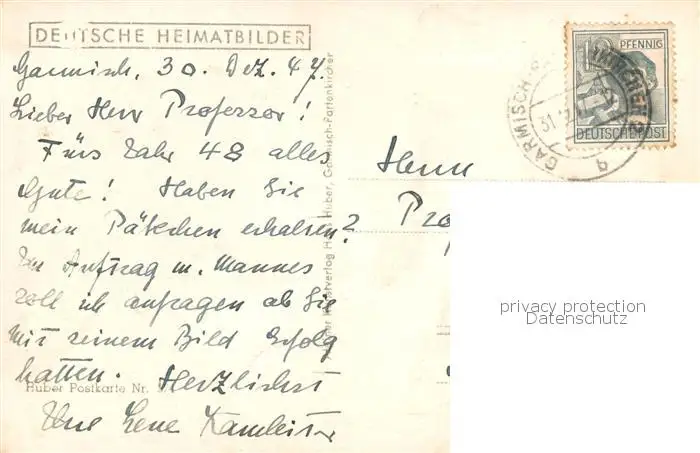 DEUTSCHE HEIMATBILDER
Garmisch, 30. Dez. 47.
Lieber Herr Professor!
Fürs Jahr 48 alles
Gute! Haben Sie
mein Päckchen erhalten?
Im Auftrag m. Mannes
soll ich anfragen ob Sie
mit seinem Bild Erfolg
hatten. Herzlichst
Ihre Lene
Huber Postkarte Nr.
Kunstverlag Hans Huber, Garmisch-Partenkirchen
Herrn
Pro
12 PFENNIG
DEUTSCHE POST
GARMISCH-PARTENKIRCHEN
31.12.
privacy protection
Datenschutz